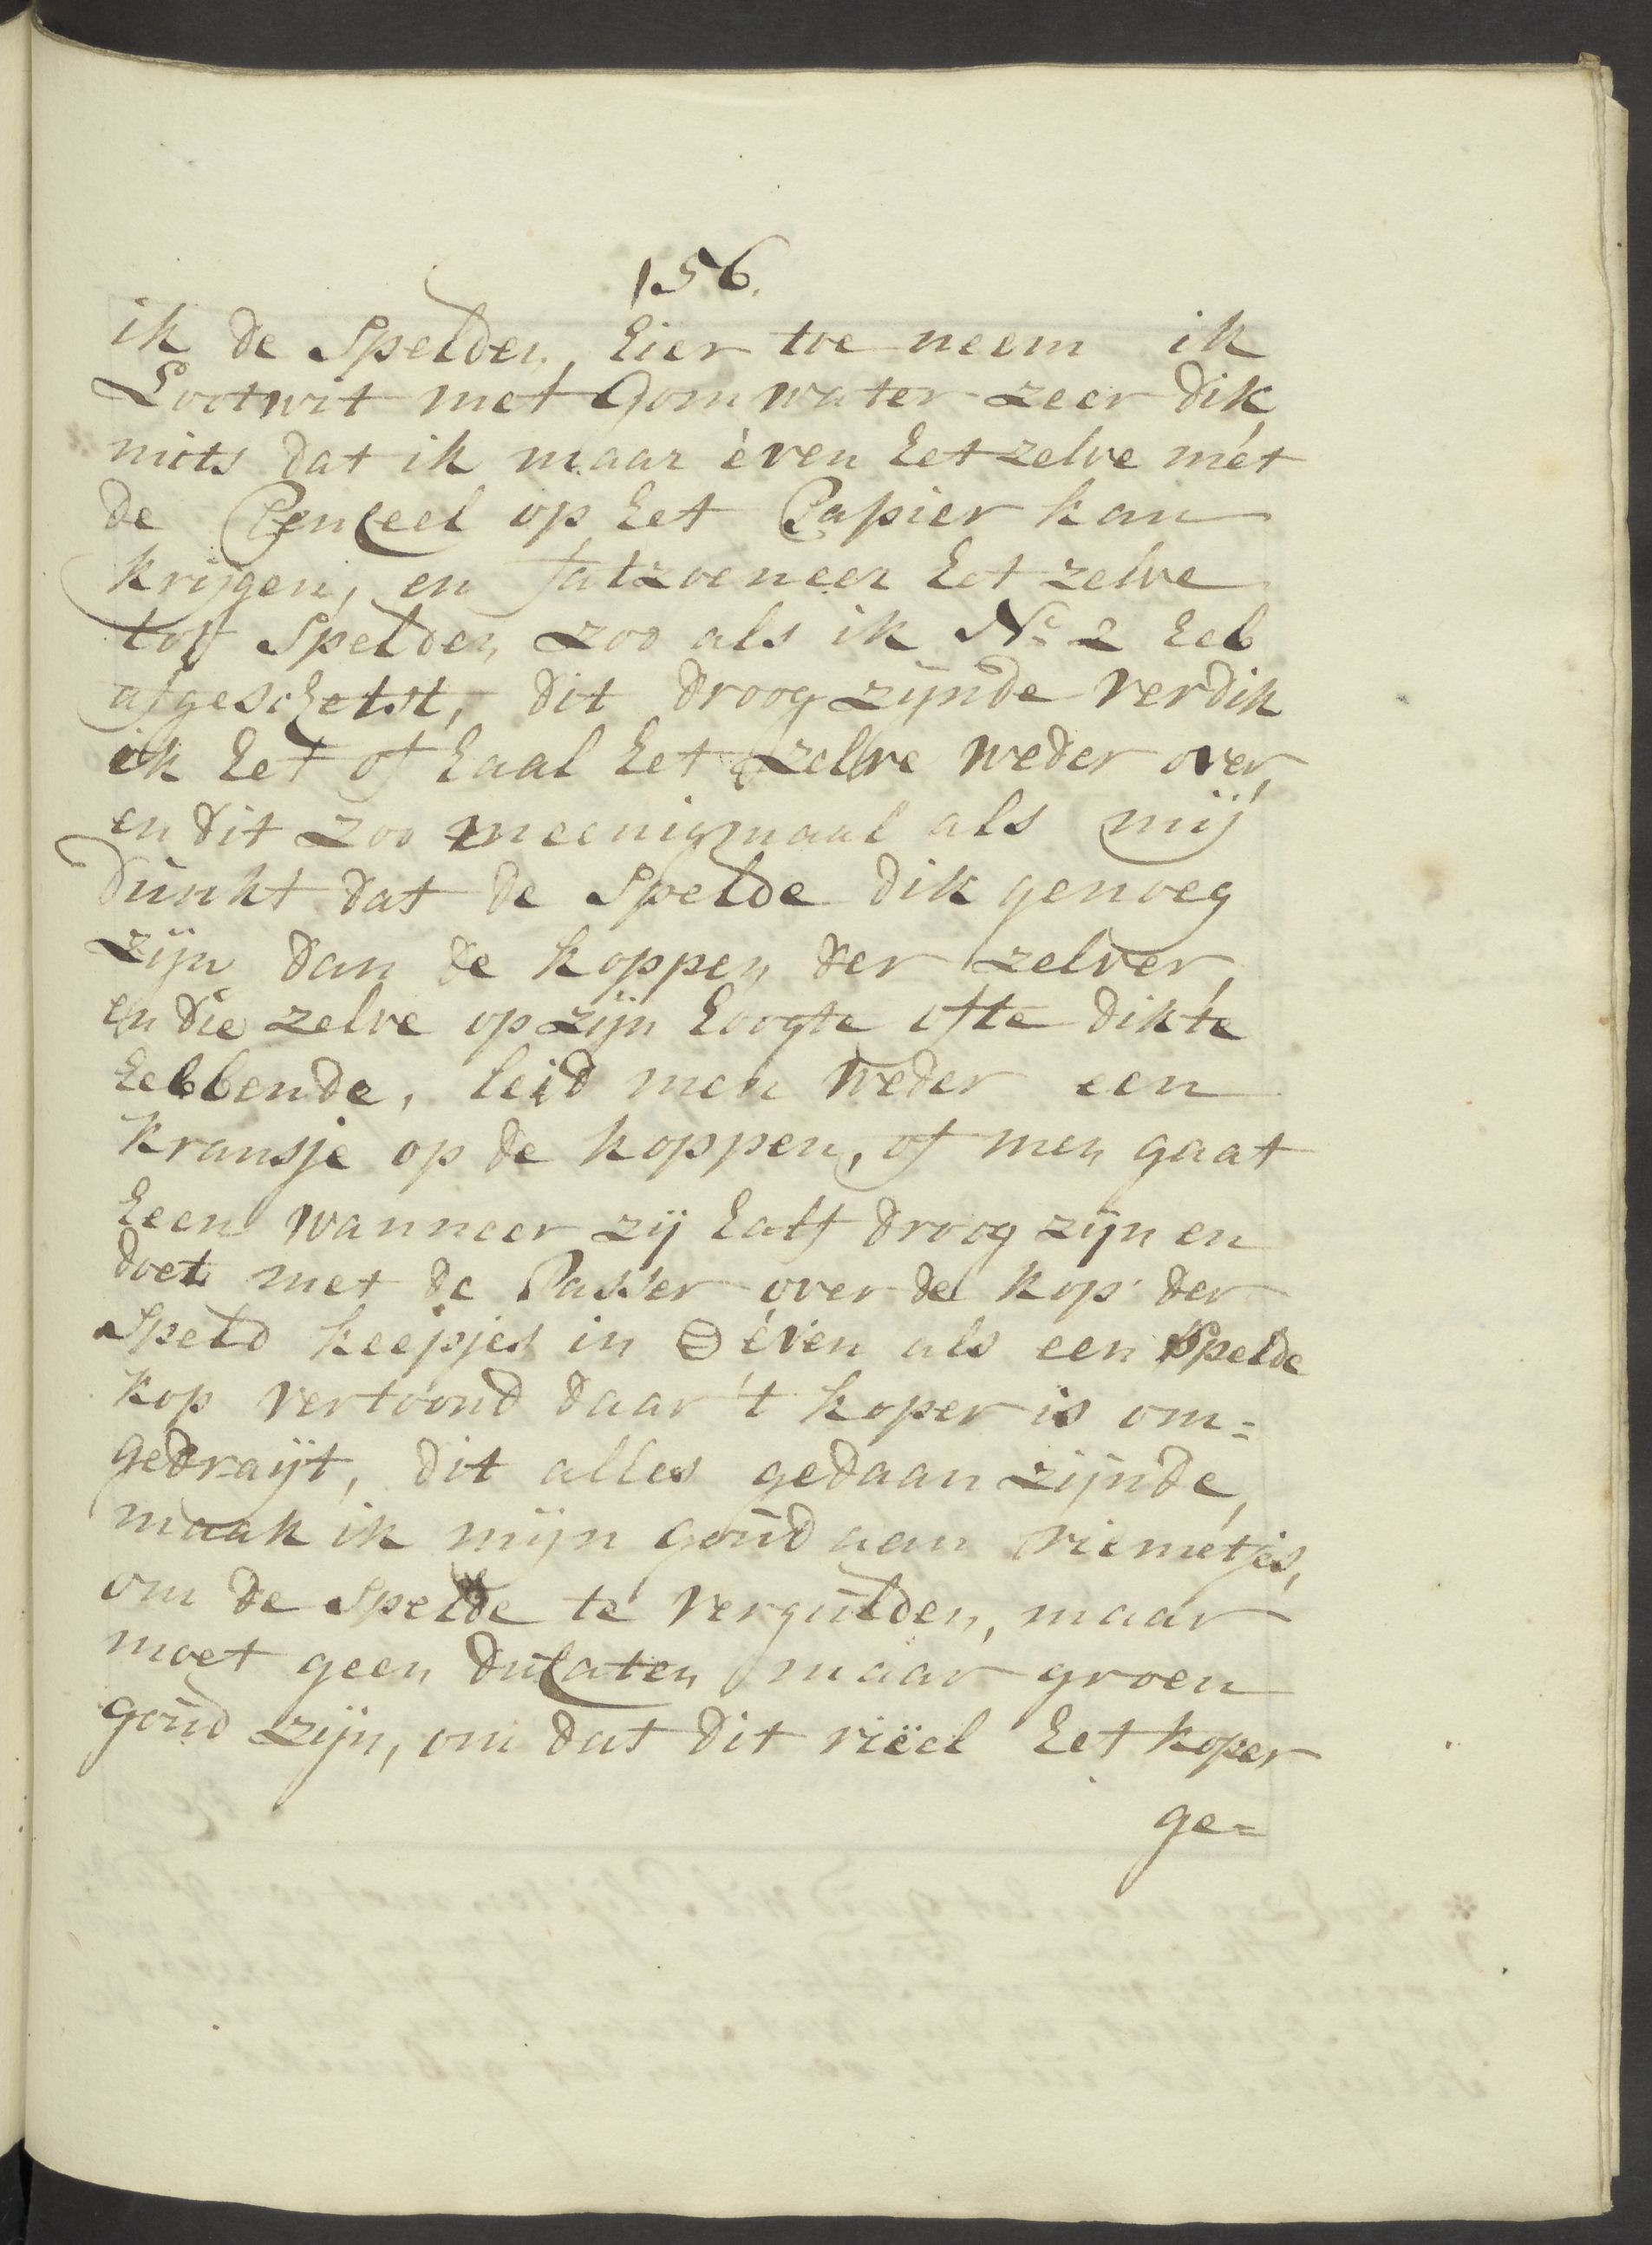 156.
ik de Spelden, hier toe neem ik
Lootwit met Gom water zeer dik
mits dat ik maar even het zelve met
de Penceel op het Papier kan
krijgen, en fatzoeneer het zelve
tot Spelden zoo als ik No 2 heb
afgeschetst, dit droog zijnde verdik
ik het of haal het zelve weder over,
en dit zoo meenigmaal als mij
dunkt dat de Spelde dik genoeg
zijn dan de koppen der zelver,
en die zelve op zijn hoogte ofte dikte
hebbende, leid men weder een
kransje op de koppen, of men gaat
heen wanneer zij half droog zijn en
doet met de Passer over de kop der
Speld keepjes in even als een Spelde
kop vertoond daar 't koper is om=
gedraijt, dit alles gedaan zijnde,
maak ik mijn goud aan riemetjes,
om de Spelde te vergulden, maar
moet geen ducaten maar groen
goud zijn, om dat dit riëel het koper
ge=